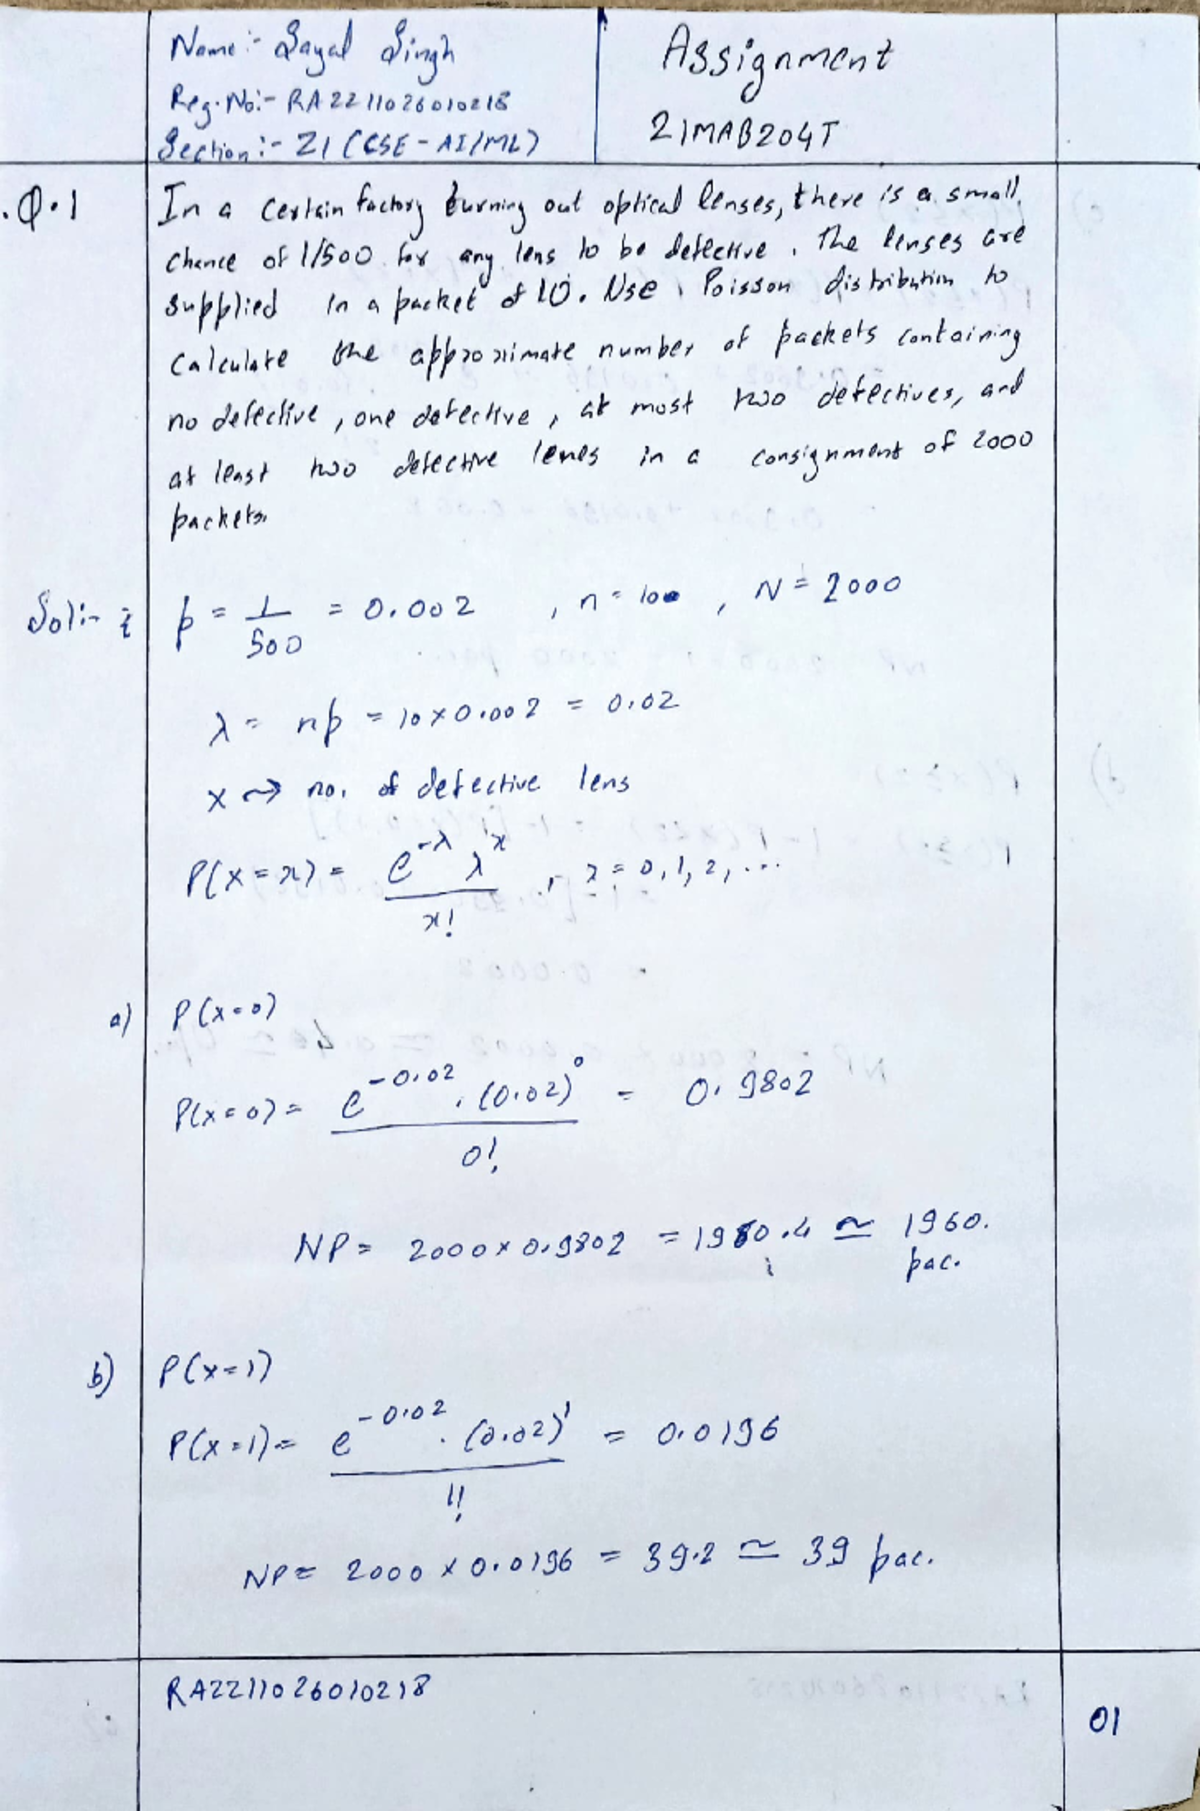 Name:- Sayal Singh
Reg. No:- RA2211026010218
Section:- Z1 (CSE-AI/ML)
Assignment
21MAB204T
.Q.1 In a certain factory turning out optical lenses, there is a small
chance of 1/500 for any lens to be defective. The lenses are
supplied in a packet of 10. Use Poisson distribution to
calculate the approximate number of packets containing
no defective, one defective, at most two defectives, and
at least two defective lenses in a consignment of 2000
packets.
Sol:- p = 1/500 = 0.002 , n = 10 , N = 2000
λ = np = 10 × 0.002 = 0.02
x → no. of defective lens
P(X = x) = e^-λ λ^x / x! , x = 0, 1, 2, ...
a) P(x=0)
P(x=0) = e^-0.02 . (0.02)^0 / 0! = 0.9802
NP = 2000 × 0.9802 = 1960.4 ≃ 1960.
pac.
b) P(x=1)
P(x=1) = e^-0.02 . (0.02)^1 / 1! = 0.0196
NP = 2000 × 0.0196 = 39.2 ≃ 39 pac.
RA2211026010218
01